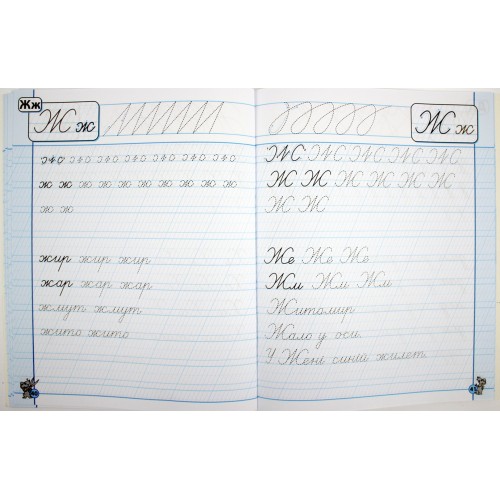 Жж
Ж ж
ж ж ж ж ж ж ж ж ж ж
ж ж
жир жир жир
жар жар жар
жмут жмут
жито жито
Ж ж
Ж Ж Ж Ж Ж Ж Ж
Ж Ж
Же Же Же
Жм Жм Жм
Житомир
Жало у оси.
У Жені синій жилет.